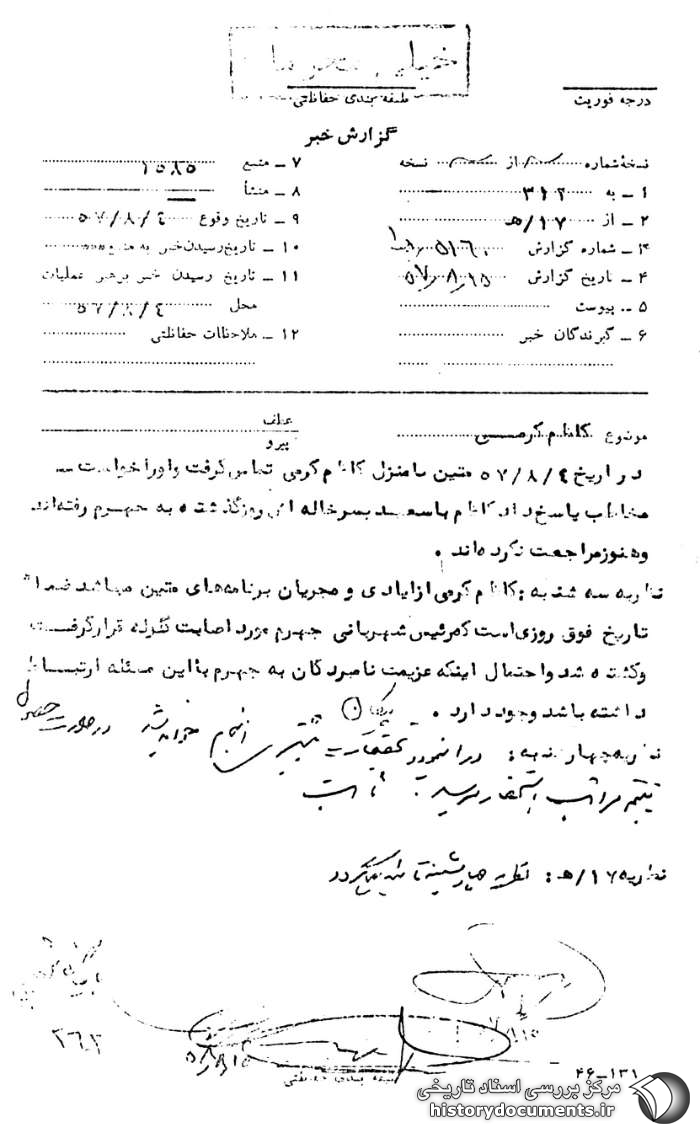 خیلی محرمانه
طبقه بندی حفاظتی
درجه فوریت
گزارش خبر
نسخهٔ شماره از نسخه
۱ ــ به ۳۱۲
۲ ــ از ۱۷/ه‍
۳ ــ شماره گزارش
۴ ــ تاریخ گزارش ۵۷/۸/۱۵
۵ ــ پیوست
۶ ــ گیرندگان خبر
۷ ــ منبع ۱۵۸۵
۸ ــ منشأ
۹ ــ تاریخ وقوع ۵۷/۸/۴
۱۰ ــ تاریخ رسیدن خبر به منبع
۱۱ ــ تاریخ رسیدن خبر برهبر عملیات
محل ۵۷/۸/۴
۱۲ ــ ملاحظات حفاظتی
موضوع کاظم کرمی
عطف
پیرو
در تاریخ ۵۷/۸/۴ متین با منزل کاظم کرمی تماس گرفت و او را خواست
مخاطب پاسخ داد کاظم با سعید پسر خاله اش روز گذشته به جهرم رفته‌اند
و هنوز مراجعت نکرده‌اند .
نظریه سه شنبه : کاظم کرمی از ایادی و مجریان برنامه‌های متین میباشد ضمناً
تاریخ فوق روزی است که رئیس شهربانی جهرم مورد اصابت گلوله قرار گرفت
و کشته شد و احتمال اینکه عزیمت نامبردگان به جهرم با این مسئله ارتباط
داشته باشد وجود دارد .
نظریه چهارشنبه : در اینمورد تحقیقات بیشتری انجام خواهد شد در صورت حصول
نتیجه مراتب باستحضار میرسد .
نظریه ۱۷/ه‍ : نظریه چهارشنبه تائید میگردد
۵۷/۸/۱۵
طبقه بندی حفاظتی
۴۶ــ۱۳۱
مرکز بررسی اسناد تاریخی
historydocuments.ir